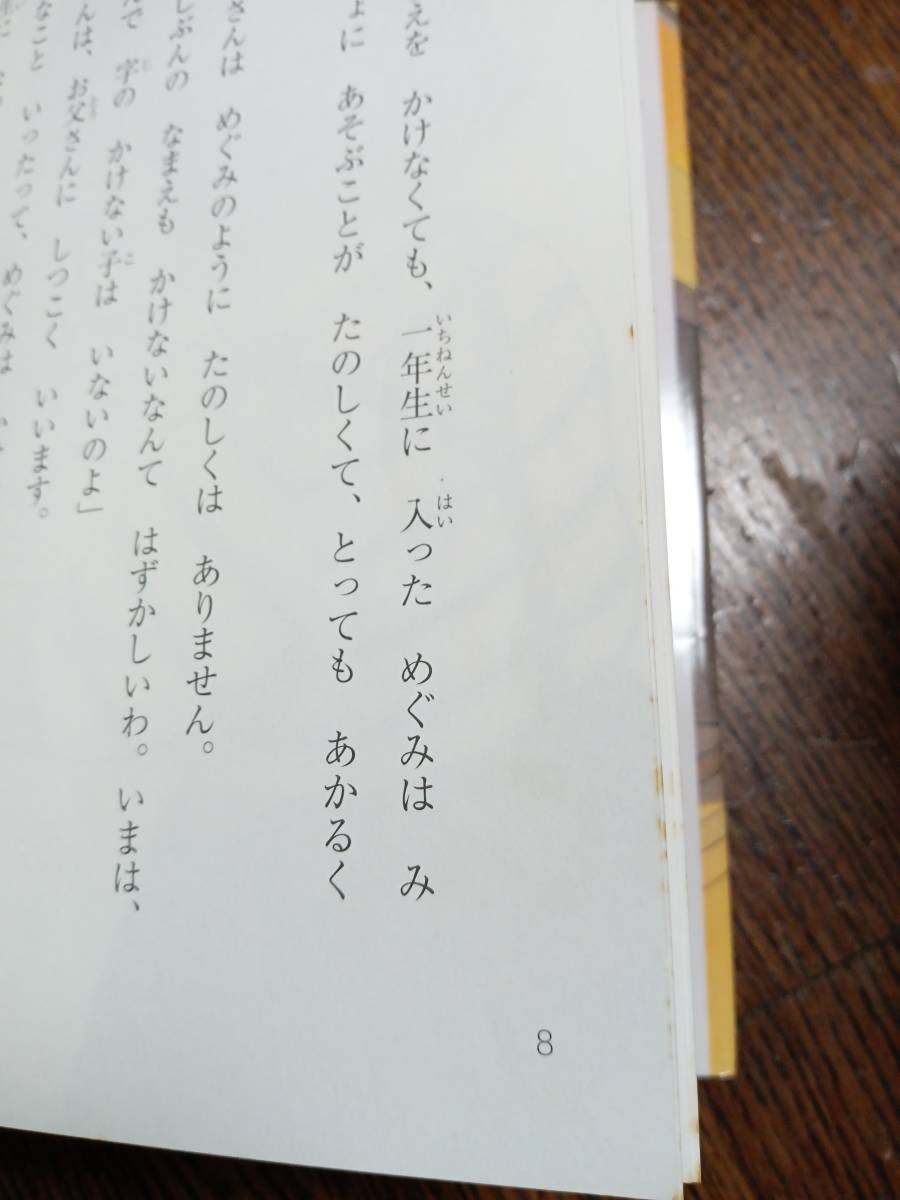 えを かけなくても、一年生に 入った めぐみは み
に あそぶことが たのしくて、とっても あかるく
さんは めぐみのように たのしくは ありません。
ぶんの なまえも かけないなんて はずかしいわ。いまは、
で 字の かけない子は いないのよ」
んは、お父さんに しつこく いいます。
なこと いったって、めぐみは
8